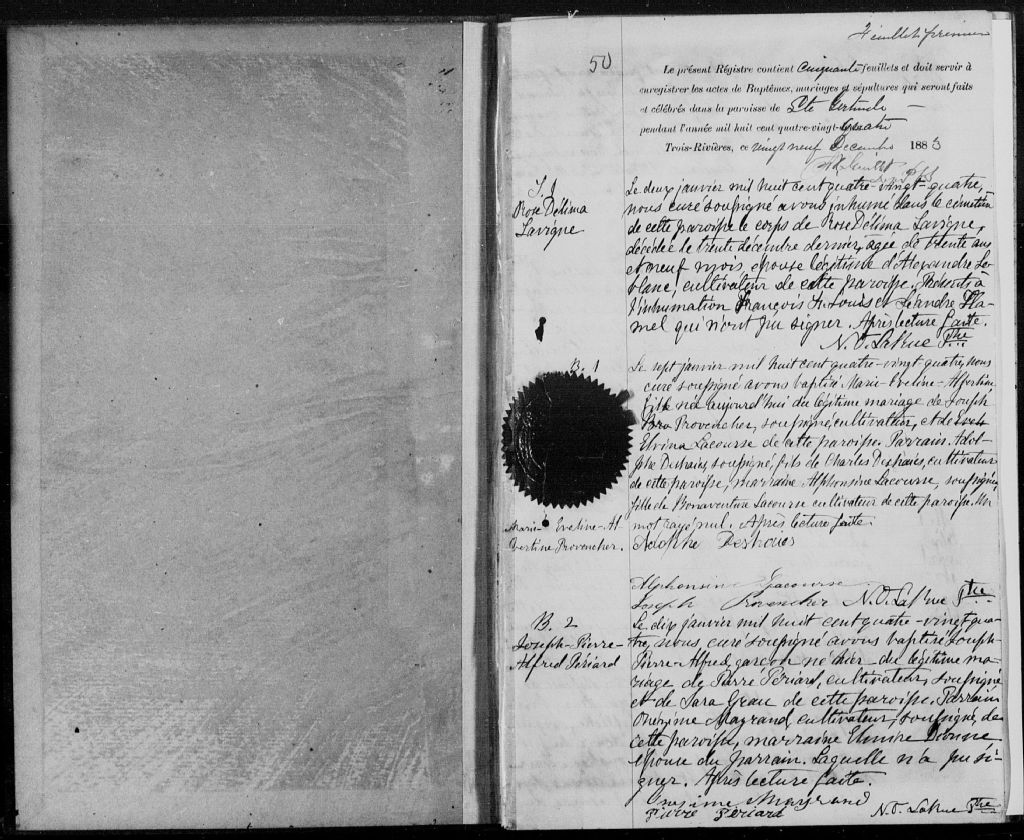 Feuillet premier
50
Le présent Régistre contient Cinquante feuillets et doit servir à
enregistrer les actes de Baptêmes, mariages et sépultures qui seront faits
et célébrés dans la paroisse de Ste Gertrude
pendant l'année mil huit cent quatre-vingt-quatre
Trois-Rivières, ce vingt neuf Decembre 1883
S. 1
Rose Délima
Lavigne
Le deux janvier mil huit cent quatre-vingt-quatre,
nous curé soussigné avons inhumé dans le cimetière
de cette paroisse le corps de Rose Délima Lavigne,
décédée le trente décembre dernier, agée de trente ans
et neuf mois, épouse légitime d'Alexandre Le-
blanc, cultivateur de cette paroisse. Présents à
l'inhumation François St. Louis et Léandre Ha-
mel qui n'ont pu signer. Après lecture faite.
N. O. LaRue Ptre
B. 1
Marie-Eveline-Al-
bertine Provencher.
Le sept janvier mil huit cent quatre-vingt-quatre, nous
curé soussigné avons baptisé Marie-Eveline-Albertine
fille née aujourd'hui du légitime mariage de Joseph
Provencher, soussigné, cultivateur, et de
Elvina Lacourse de cette paroisse. Parrain Adol-
phe Deshaies, soussigné, fils de Charles Deshaies, cultivateur
de cette paroisse, marraine Alphonsine Lacourse, soussignée,
fille de Bonaventure Lacourse cultivateur de cette paroisse. Un
mot rayé nul. Après lecture faite.
Adolphe Deshaies
Alphonsine Lacourse
Joseph Provencher N. O. LaRue Ptre
B. 2
Joseph-Pierre-
Alfred Périard
Le dix janvier mil huit cent quatre-vingt-qua-
tre, nous curé soussigné avons baptisé Joseph-
Pierre-Alfred, garçon né hier du légitime ma-
riage de Pierre Périard, cultivateur, soussigné
et de Sara Grau de cette paroisse. Parrain
Onézime Mayrand, cultivateur, soussigné, de
cette paroisse, marraine Elmire Dionne
épouse du parrain. Laquelle n'a pu si-
gner. Après lecture faite.
Onezime Mayrand
Pierre Périard N. O. LaRue Ptre